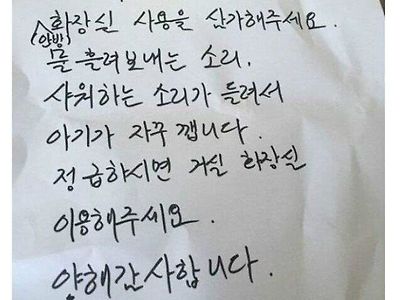 (안방)화장실 사용을 삼가해주세요.
물 흘려보내는 소리.
샤워하는 소리가 들려서
아기가 자꾸 깹니다.
정 급하시면 거실 화장실
이용해주세요.
양해감사합니다.